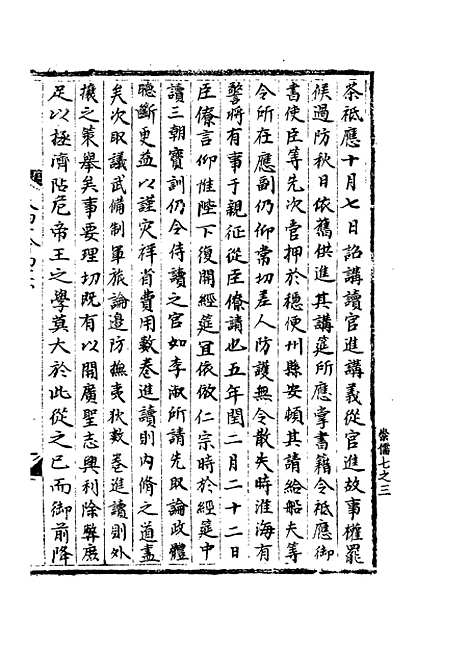 崇儒七之三
茶祗應十月七日詔講讀官進講義從官進故事權罷
候過防秋日依舊供進其講筵所應掌書籍令祗應御
書使臣等先次管押於穩便州縣安頓其請給船夫等
令所在應副仍仰常切差人防護無令散失時淮海有
警將有事于親征從臣僚請也五年閏二月二十二日
臣僚言仰惟陛下復開經筵宜依倣仁宗時於經筵中
讀三朝寶訓仍令侍讀之官如李淑所請先取論政體
聽斷更益以謹灾祥省費用數卷進讀則内脩之道盡
矣次取議武備制軍旅論邉防撫夷狄數卷進讀則外
攘之策舉矣事要理切既有以開廣聖志興利除弊度
足以極濟阽危帝王之學莫大於此從之已而御前降